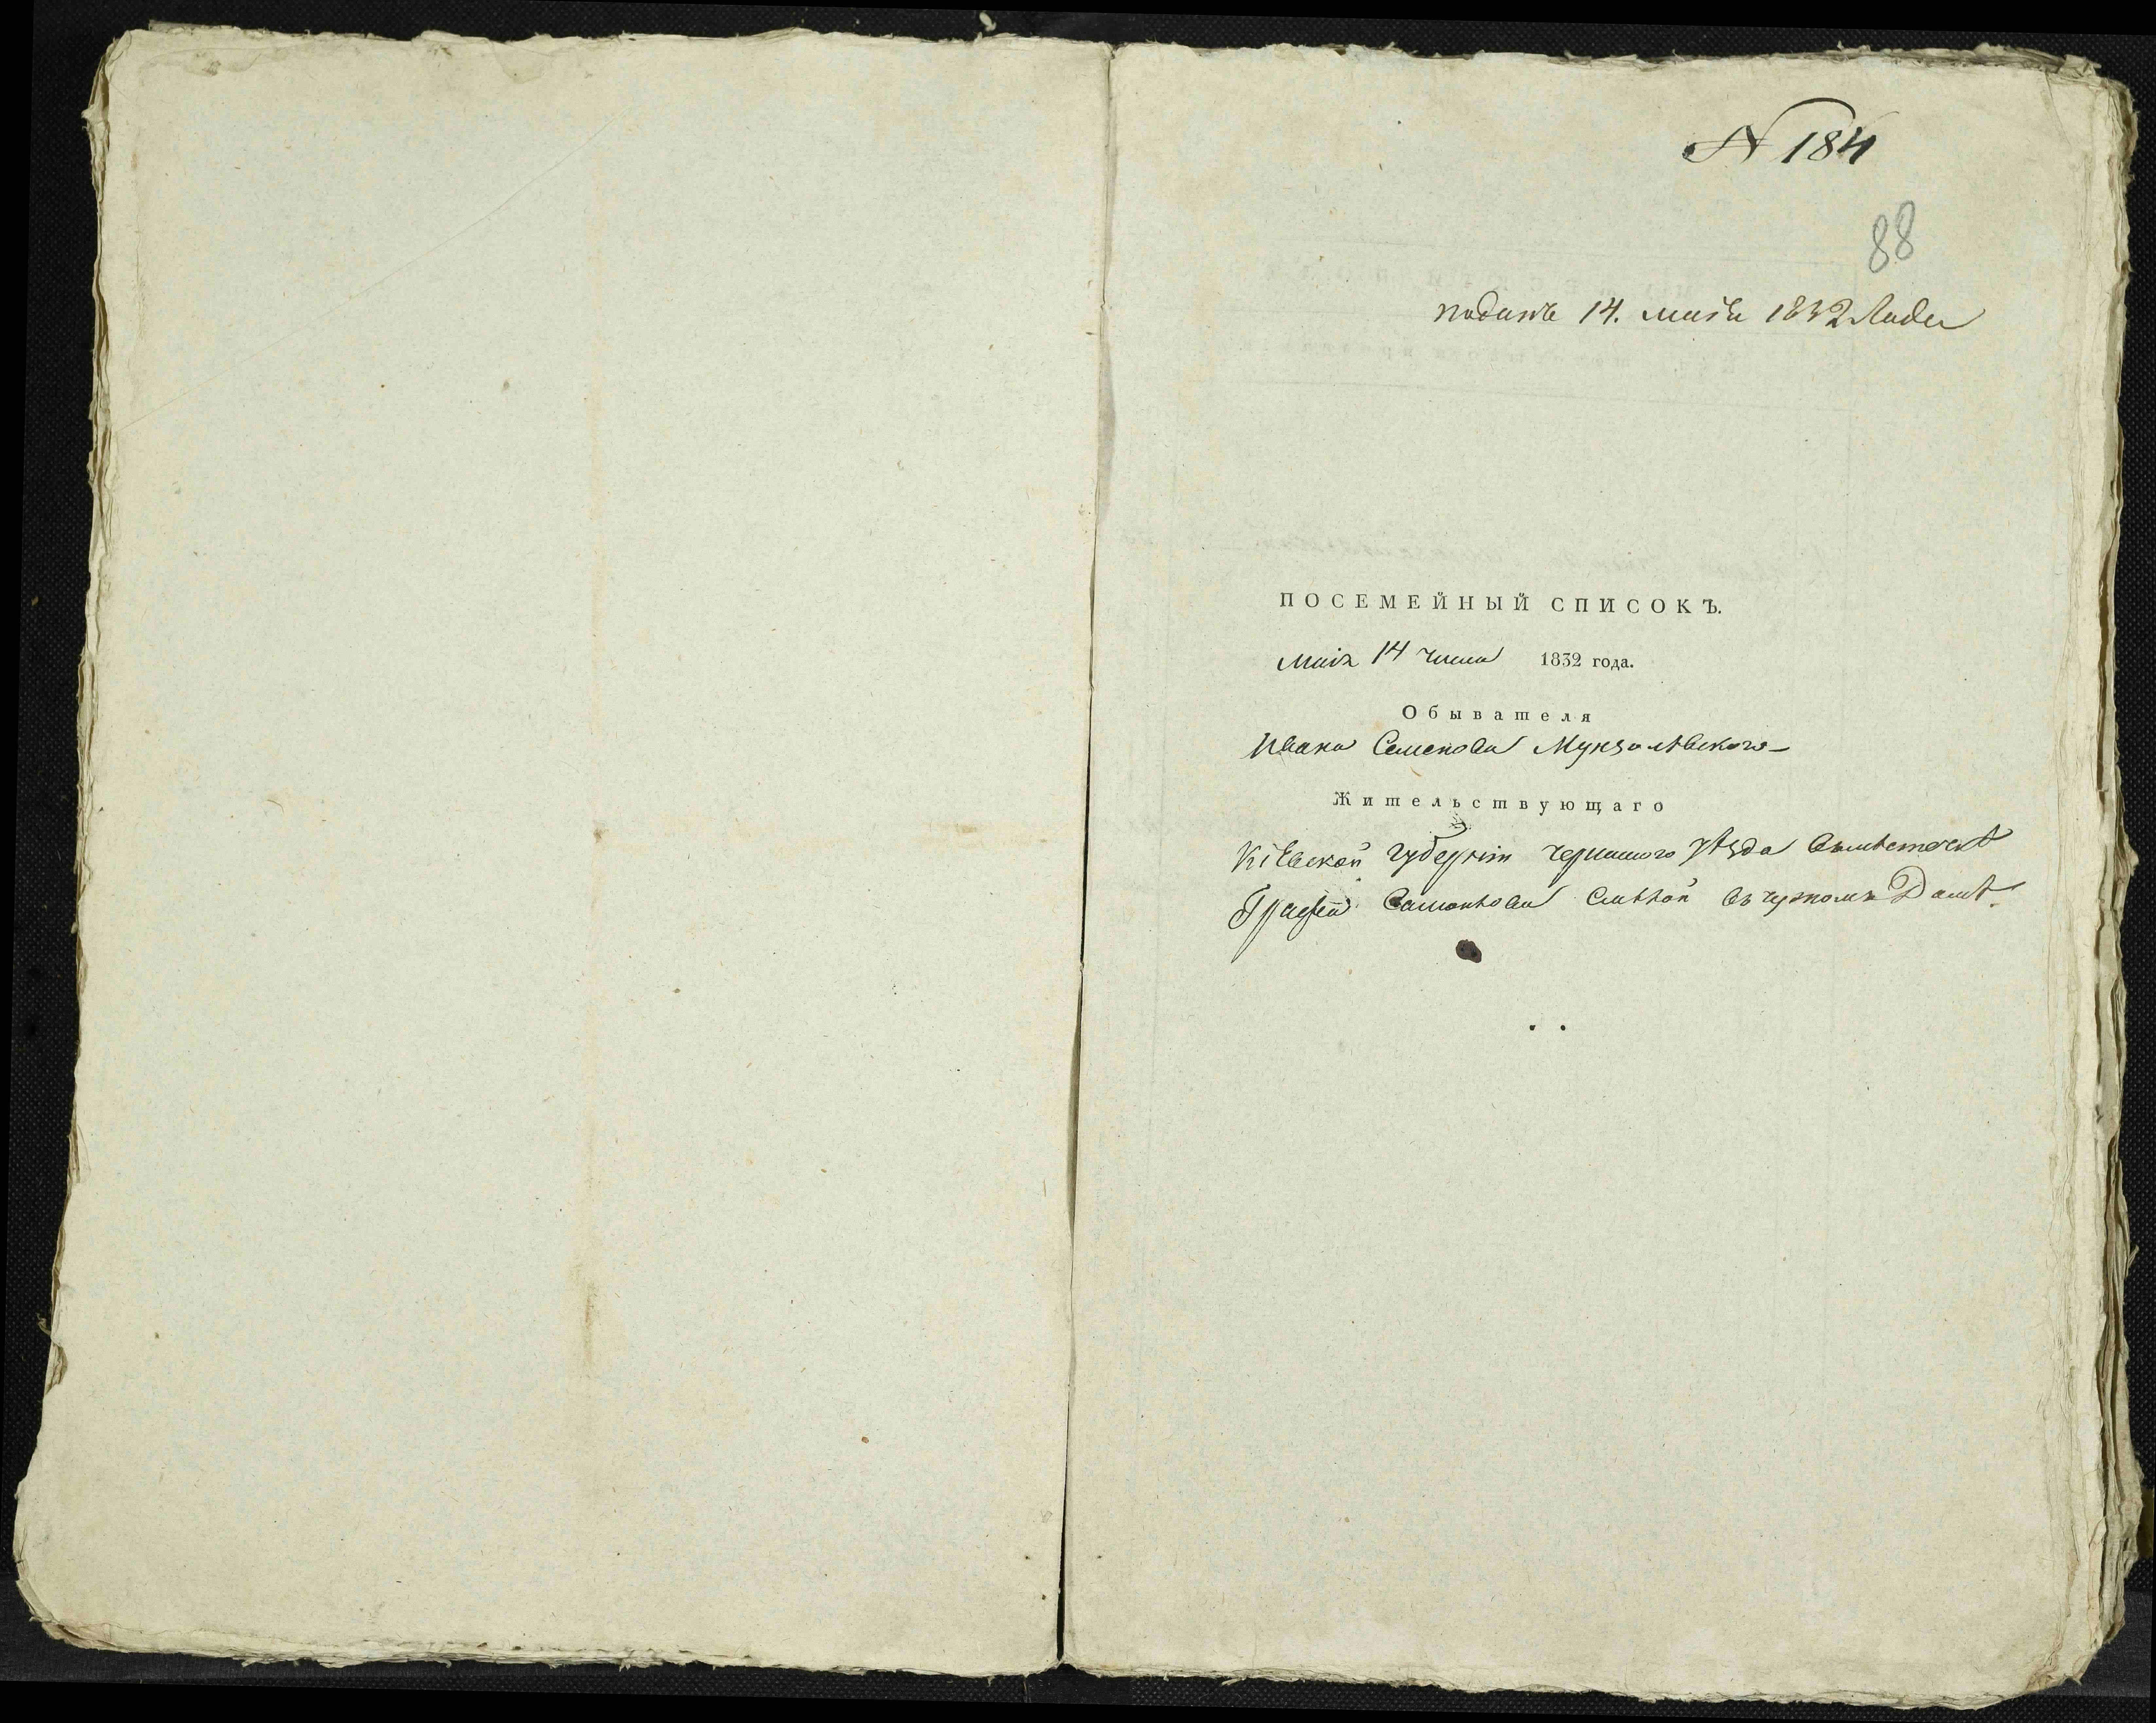 N 184
88
поданъ 14. маія 1832 года
ПОСЕМЕЙНЫЙ СПИСОКЪ.
маія 14 числа 1832 года.
Обывателя
Ивана Семенова Мукзолѣвского
Жительствующаго
Кіевской Губерніи Черкаского уѣзда вмѣстечкѣ
Графа Самойлова Смѣлой въ чужомъ Домѣ.